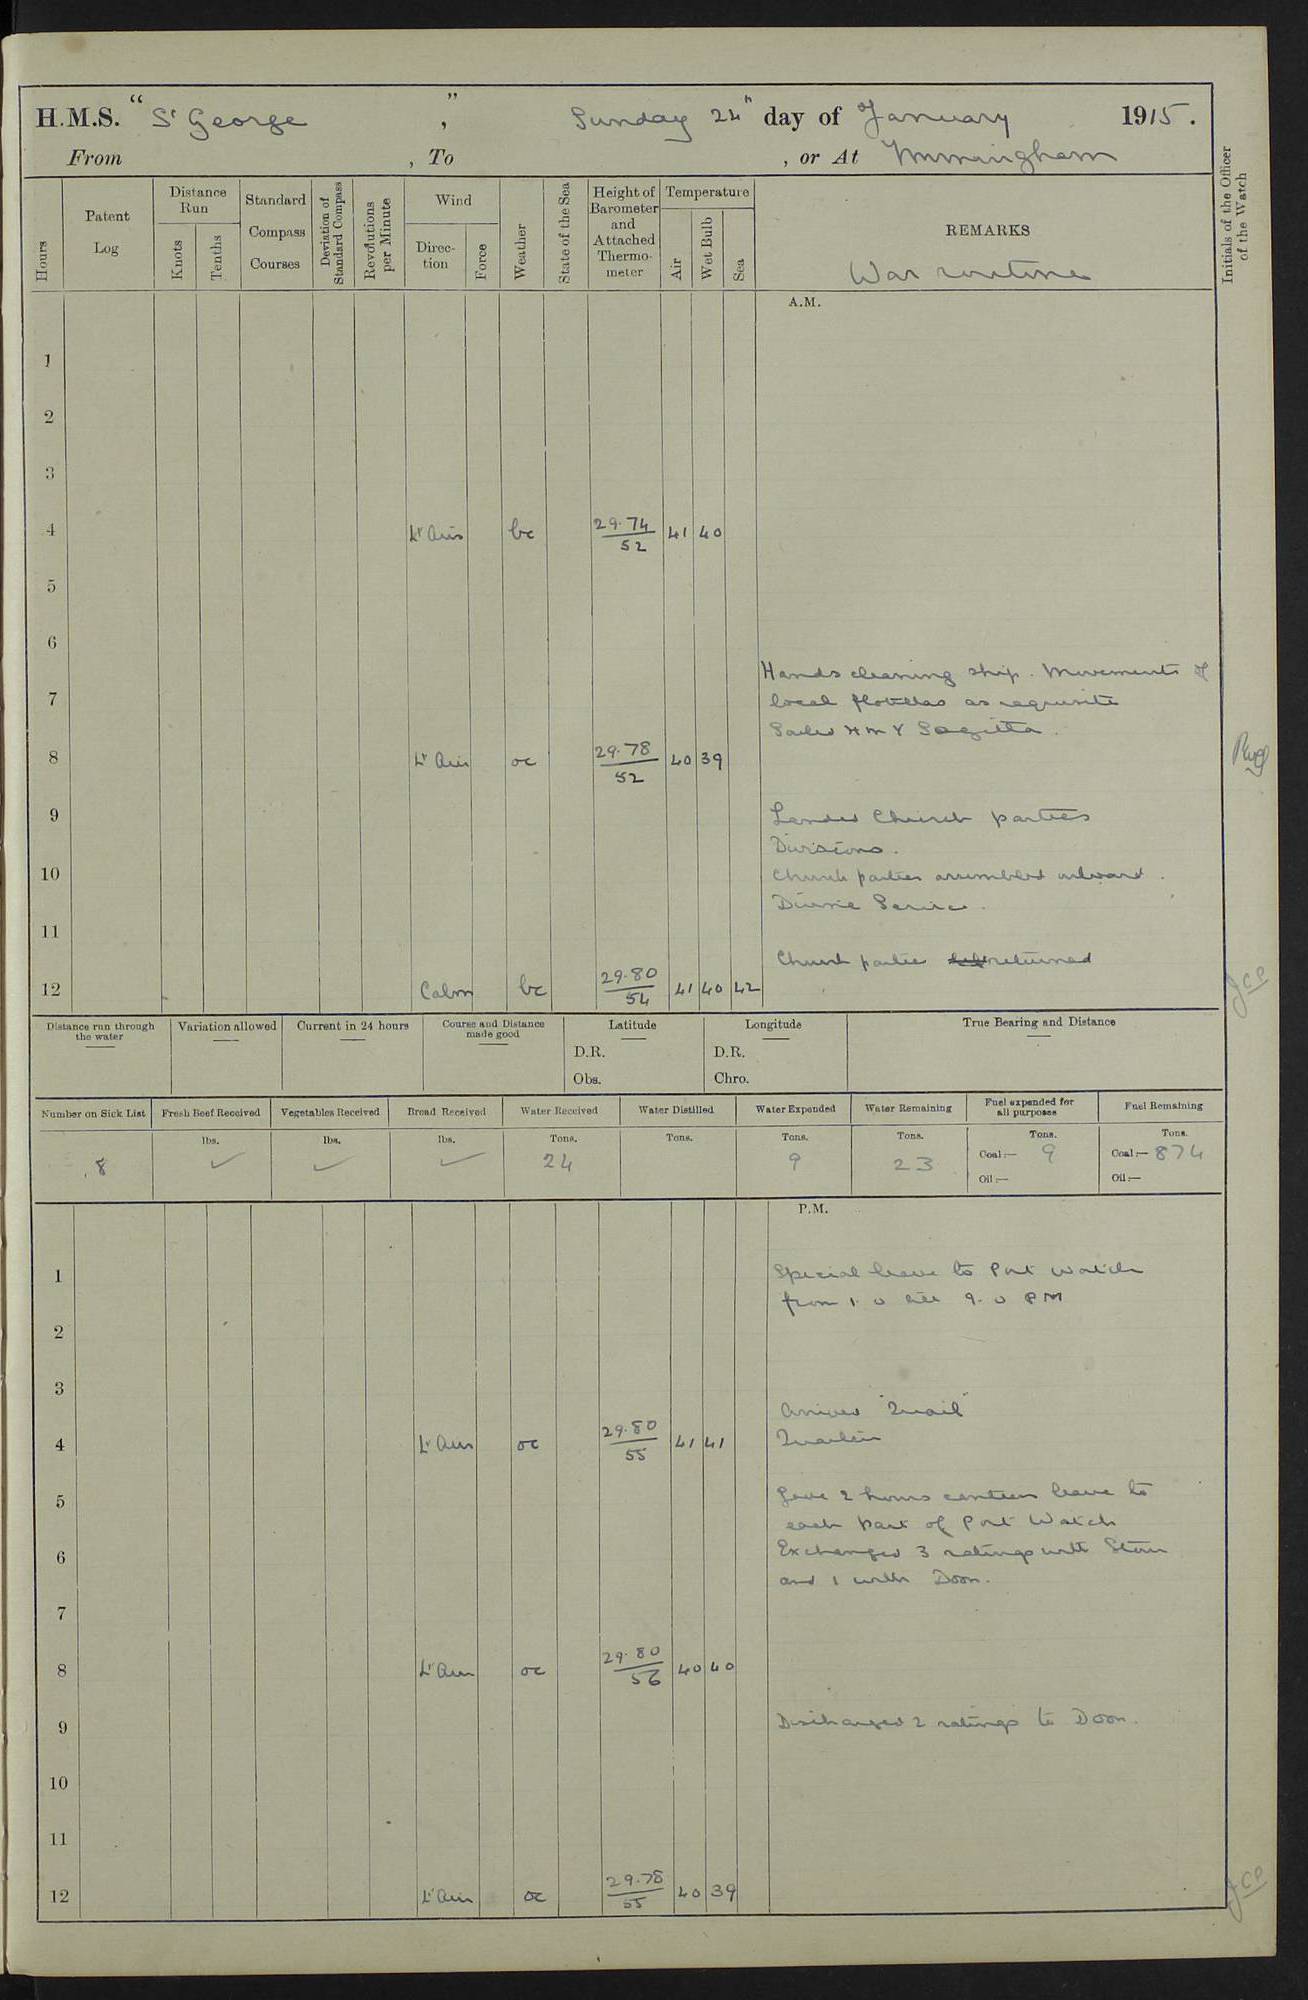 H.M.S. "St George", Sunday 24th day of January 1915.
From , To , or At Immingham
Hours
Patent Log
Distance Run
Knots
Tenths
Standard Compass Courses
Deviation of Standard Compass
Revolutions per Minute
Wind
Direction
Force
Weather
State of the Sea
Height of Barometer and Attached Thermometer
Temperature
Air
Wet Bulb
Sea
REMARKS
War routine
Initials of the Officer of the Watch
A.M.
1
2
3
4 Lt Airs bc 29.74/52 41 40
5
6
Hands cleaning ship. Movements of
7 local flotillas as requisite
Sailed HMY Sagitta.
8 Lt Airs oc 29.78/52 40 39
9 Landed Church parties
Divisions.
10 Church parties assembled onboard.
Divine Service.
11
Church parties returned
12 Calm bc 29.80/54 41 40 42
JCP
Distance run through the water
Variation allowed
Current in 24 hours
Course and Distance made good
Latitude
D.R.
Obs.
Longitude
D.R.
Chro.
True Bearing and Distance
Number on Sick List
Fresh Beef Received
Vegetables Received
Bread Received
Water Received
Water Distilled
Water Expended
Water Remaining
Fuel expended for all purposes
Fuel Remaining
8
lbs. ✓
lbs. ✓
lbs. ✓
Tons. 24
Tons.
Tons. 9
Tons. 23
Tons. Coal:— 9
Oil:—
Tons. Coal:— 874
Oil:—
P.M.
1 Special leave to Port Watch
from 1.0 till 9.0 PM
2
3
Arrived "Quail"
4 Lt Airs oc 29.80/55 41 41 Quarters
5 Gave 2 hours canteen leave to
each part of Port Watch
6 Exchanged 3 ratings with Stour
and 1 with Doon.
7
8 Lt Airs oc 29.80/56 40 40
9 Discharged 2 ratings to Doon.
10
11
12 Lt Airs oc 29.78/55 40 39
JCP